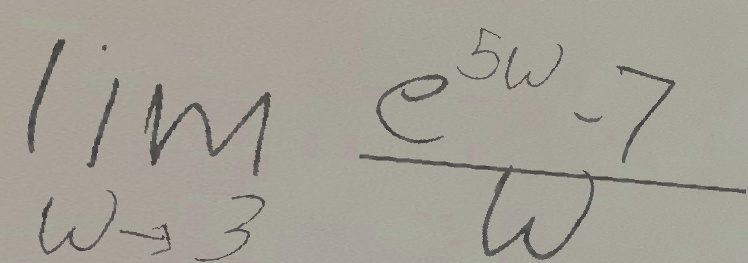 lim_{w→3} \frac{e^{5w}-7}{w}